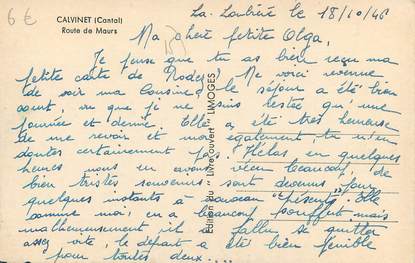 6€
CALVINET (Cantal)
Route de Maurs
La Loubière le 18/10/46
Ma chère petite Olga,
Je pense que tu as bien reçu ma
petite carte de Rodez. Me voici revenue
de voir ma Cousine, le séjour a été bien
court, vu que je ne suis restée qu'une
journée et demie. Elle a été très heureuse
de me revoir et moi également, tu n'en
doutes certainement pas. Hélas en quelques
heures nous en avons vécu beaucoup, de
bien tristes souvenirs sont devenus, pour
quelques instants à nouveau "présents". Elle
comme moi, en a beaucoup souffert, mais
malheureusement il a fallu se quitter
assez vite, le départ a été bien pénible
pour toutes deux....
Edition du "Livre ouvert" LIMOGES